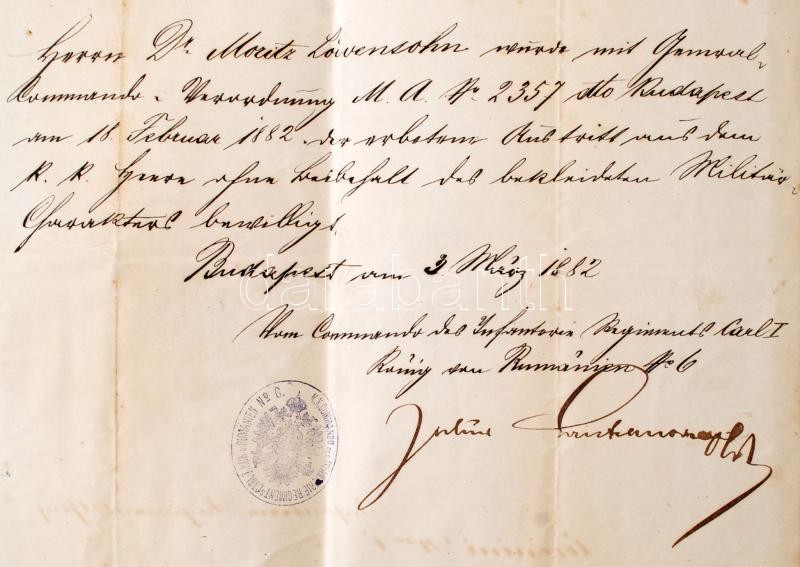 Herrn Dr. Moritz Lövensohn wurde mit General-
Commando-Verordnung M. A. No. 2357 dto Budapest
am 18. Februar 1882 der erbetene Austritt aus dem
k. k. Heere ohne Beibehalt des bekleideten Militär-
Charakters bewilligt.
Budapest am 3 März 1882
Vom Commando des Infanterie Regiments Carl I
König von Rumänien No 6
darabanth
Obst